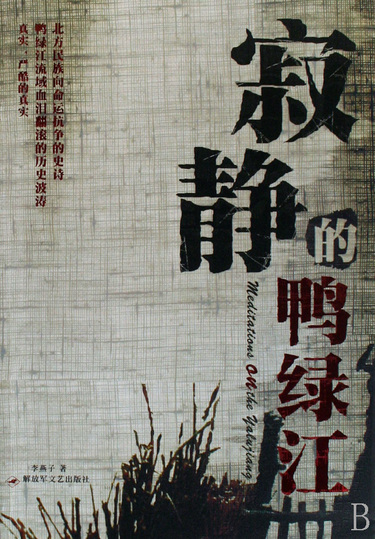 寂静的鸭绿江
Meditations on the Yalujiang
北方民族向命运抗争的史诗
鸭绿江流域血泪翻滚的历史波涛
真实，严酷的真实
李燕子 著
解放军文艺出版社
B